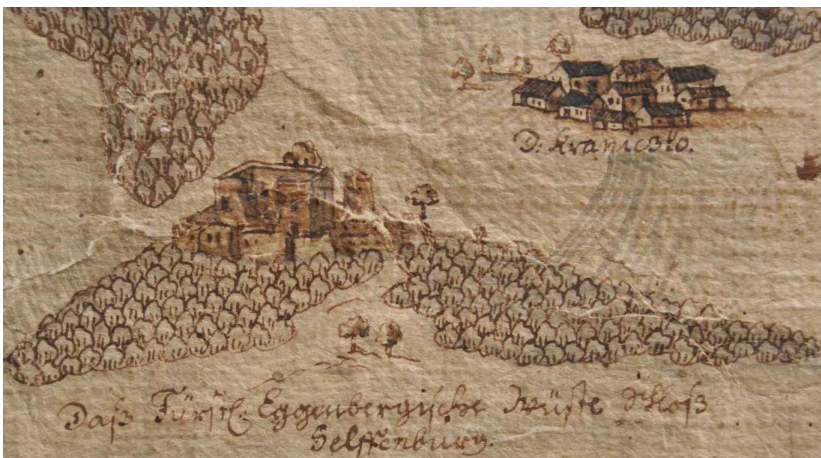 D: Kranicsko.
Daß Fürstl: Eggenbergische Wüste Schloß
Helffenburg.